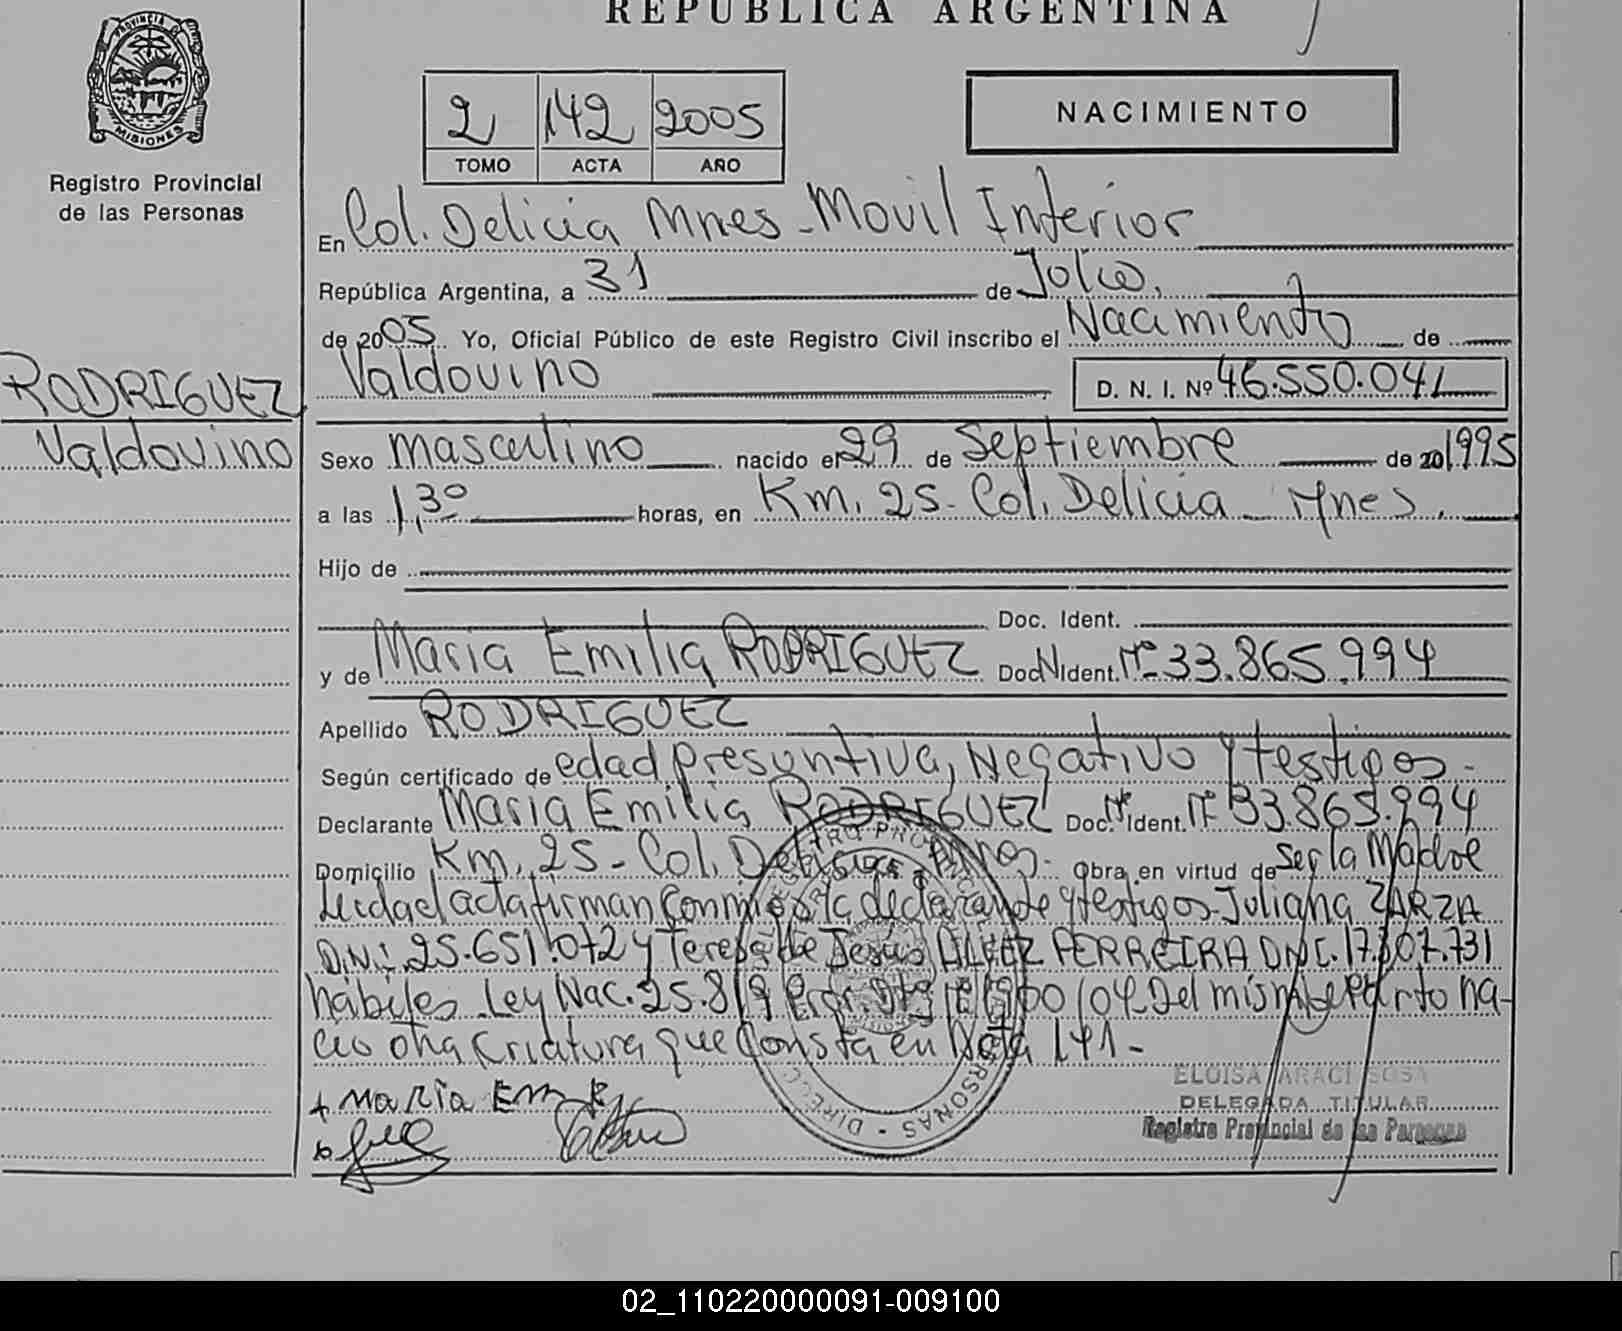 REPUBLICA ARGENTINA
PROVINCIA DE
MISIONES
Registro Provincial
de las Personas
2 142 2005
TOMO ACTA AÑO
NACIMIENTO
En Col. Delicia Mnes - Movil Interior
República Argentina, a 31 de Julio.
de 2005. Yo, Oficial Público de este Registro Civil inscribo el Nacimiento de
Valdovino D. N. I. Nº 46.550.041
RODRIGUEZ
Valdovino
Sexo masculino nacido el 29 de Septiembre de 20 1995
a las 1,30 horas, en Km. 25 - Col. Delicia - Mnes.
Hijo de
Doc. Ident.
y de Maria Emilia RODRIGUEZ Doc. Ident. Nº 33.865.994
Apellido RODRIGUEZ
Según certificado de edad presuntiva, Negativo y testigos -
Declarante Maria Emilia RODRIGUEZ Doc. Ident. Nº 33.865.994
Domicilio Km. 25 - Col. Delicia Mnes. Obra en virtud de ser la Madre
Leida el acta firman conmigo la declarante y testigos - Juliana ZARZA
D.N.I. 25.651.072 y Teresa de Jesus FERREIRA DNI. 17.307.731
habiles. Ley Nac. 25.819 /04. Del mismo Parto na-
cio otra Criatura que Consta en Acta 141 -
+ MaRia Em R
ELOISA ARACI SOSA
DELEGADA TITULAR
Registro Provincial de las Personas
02_110220000091-009100